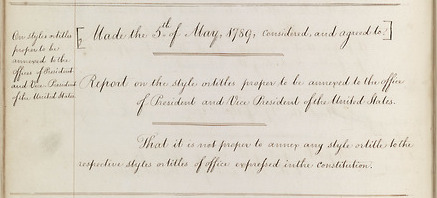 On styles or titles
proper to be
annexed to the
offices of President
and Vice President
of the United States
[Made the 5th of May, 1789, considered, and agreed to.]
Report on the style or titles proper to be annexed to the office
of President and Vice President of the United States.
That it is not proper to annex any style or title to the
respective styles or titles of office expressed in the Constitution.